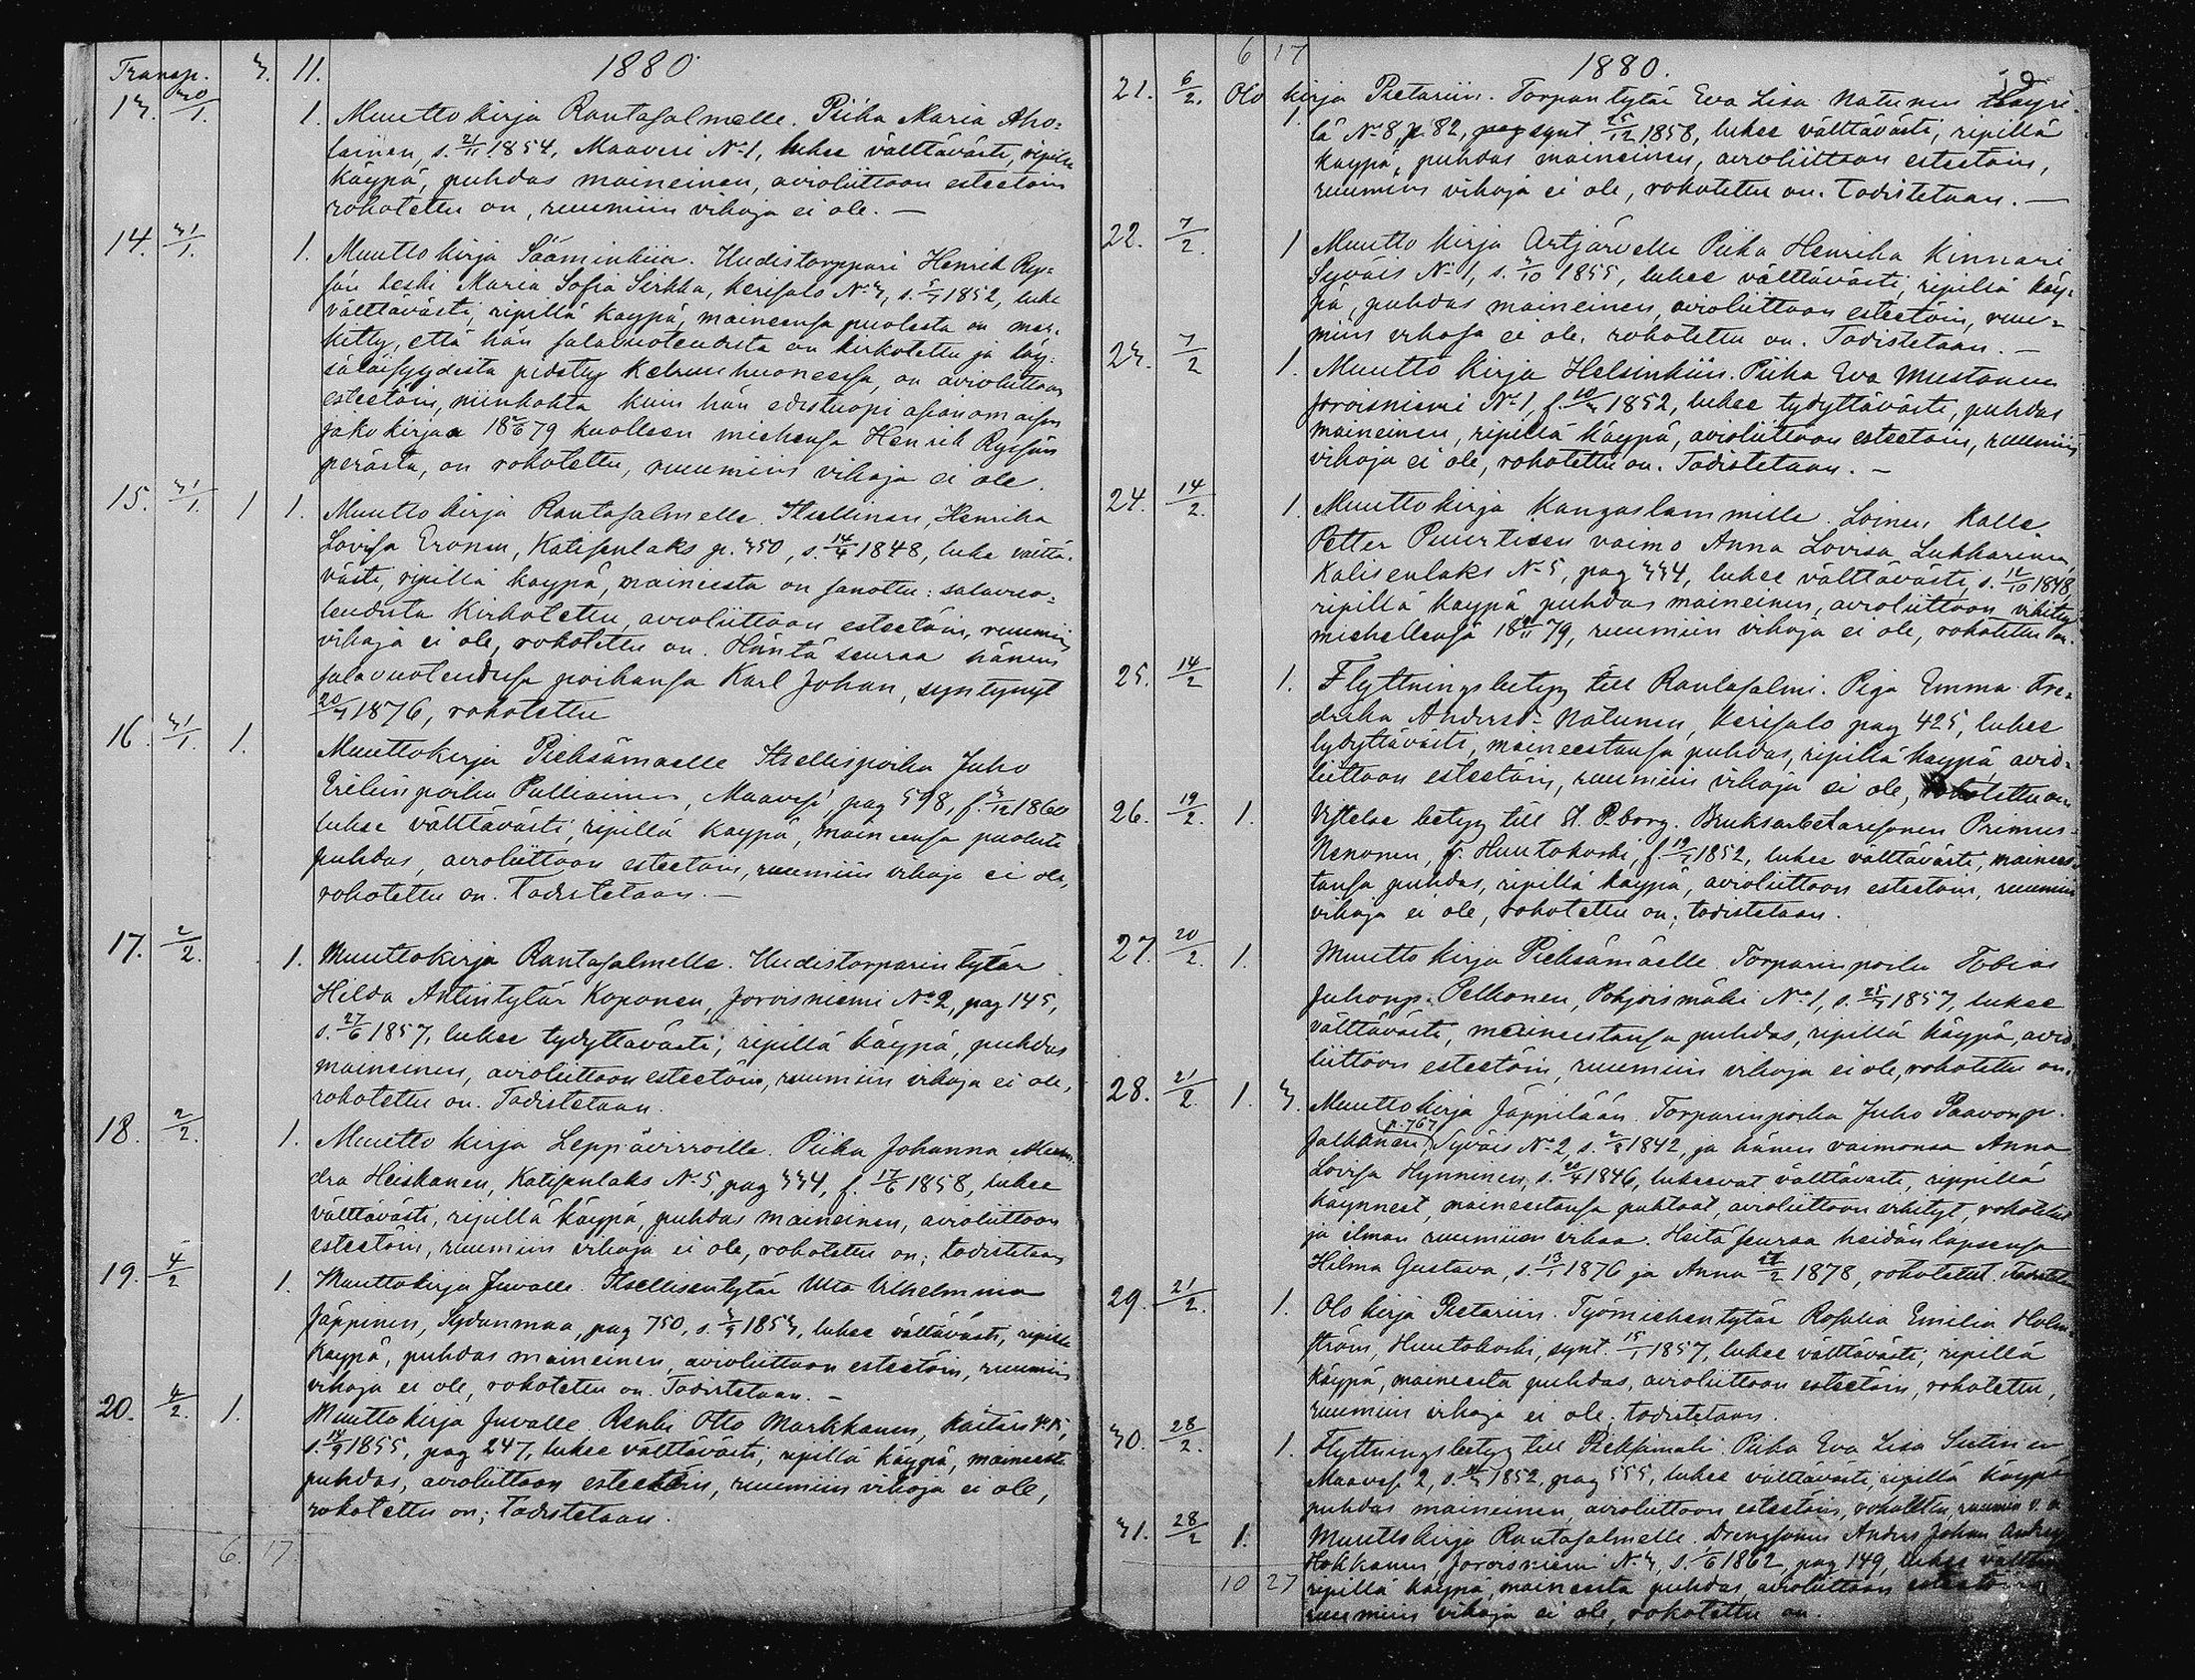 Transp. 3. 11. 1880
13. 30/1. 1. Muuttokirja Rantasalmelle. Piika Maria Aho=
lainen, s. 21/11 1854, Maavesi No 1, lukee välttävästi, ripillä
käypä, puhdas maineinen, avioliittoon esteetöin
rokotettu on, ruumiin vikoja ei ole. —
14. 31/1. 1. Muutto kirja Sääminkiin. Uudistorppari Henrik Ryy=
sän leski Maria Sofia Sirkka, Kerisalo No 3, s. 5/7 1852, luke
välttävästi, ripillä käypä, maineensa puolesta on mer=
kitty, että hän salavuoteudesta on kirkotettu ja
pidetty Kehruuhuoneessa, on avioliittoon
esteetöin, niinkohta kuin hän edestuopi asianomaisen
jakokirjaa 1879 kuolleen miehensä Henrik Ryysän
perästä, on rokotettu, ruumiin vikoja ei ole.
15. 31/1. 1 1. Muutto kirja Rantasalmelle. Itsellinen, Henrika
Lovisa Eronen, Katisenlaks p. 350, s. 14/4 1848, luke vältä=
västi, ripillä käypä, maineesta on sanottu: salavuo=
teudesta kirkotettu, avioliittoon esteetöin, ruumiin
vikoja ei ole, rokotettu on. Häntä seuraa hänen
salavuoteudesa poikansa Karl Johan, syntynyt
20/7 1876, rokotettu
16. 31/1. 1. Muuttokirja Pieksämäelle Itsellispoika Juho
Erikinpoika Pulliainen, Maavesi, pag 598, f. 3/12 1860
lukee välttävästi, ripillä käypä, maineensa puolesta
puhdas, avioliittoon esteetöin, ruumiin vikoja ei ole,
rokotettu on. Todistetaan. —
17. 2/2. 1. Muuttokirja Rantasalmelle. Uudistorparin tytär
Hilda Antintytär Koponen, Joroisniemi No 2, pag 145,
s. 27/6 1857, lukee tydyttävästi, ripillä käypä, puhdas
maineinen, avioliittoon esteetöin, ruumiin vikoja ei ole,
rokotettu on. Todistetaan.
18. 2/2. 1. Muutto kirja Leppävirroille. Piika Johanna
Heiskanen, Katisenlaks No 5, pag 334, f. 17/6 1858, lukee
välttävästi, ripillä käypä, puhdas maineinen, avioliittoon
esteetöin, ruumiin vikoja ei ole, rokotettu on; todistetaan
19. 4/2 1. Muuttokirja Juvalle. Itsellisentytär Ulla Vilhelmina
Jäppinen, Sydänmaa, pag 750, s. 3/9 1853, lukee välttävästi, ripillä
käypä, puhdas maineinen, avioliittoon esteetöin, ruumiin
vikoja ei ole, rokotettu on. Todistetaan. —
20. 4/2. 1. Muuttokirja Juvalle Renki Otto Markkanen,
s. 14/9 1855, pag 247, lukee välttävästi, ripillä käypä, maineesta
puhdas, avioliittoon esteetöin, ruumiin vikoja ei ole,
rokotettu on; todistetaan.
6. 17.
6 17 1880.
21. 6/2. Olo kirja Pietariin. Torpan tytär Eva Lisa Natunen Häyri=
1. lä No 8 p. 82, synt 25/12 1858, lukee välttävästi, ripillä
käypä, puhdas maineinen, avioliittoon esteetöin,
ruumiin vikoja ei ole, rokotettu on. Todistetaan. —
22. 7/2. 1 Muutto kirja Artjärvelle Piika Henrika Kinnari
Syväis No 1, s. 3/10 1855, lukee välttävästi, ripillä käy=
pä, puhdas maineinen, avioliittoon esteetöin, ruu=
miin vikoja ei ole, rokotettu on. Todistetaan. —
23. 7/2 1. Muutto kirja Helsinkiin. Piika Eva Mustonen
Joroisniemi No 1, f. 1852, lukee tydyttävästi, puhdas
maineinen, ripillä käypä, avioliittoon esteetöin, ruumiin
vikoja ei ole, rokotettu on. Todistetaan. —
24. 14/2. 1. Muutto kirja Kangaslammille. Loinen Kalle
Petter Puurtisen vaimo Anna Lovisa Lukkarinen,
Katisenlaks No 5, pag 334, lukee välttävästi, s. 12/10 1848,
ripillä käypä, puhdas maineinen, avioliittoon vihitty
miehellensä 1879, ruumiin vikoja ei ole, rokotettu on.
25. 14/2 1. Flyttningsbetyg till Rantasalmi. Piga Emma Fre=
drika Andersd. Natunen, Kerisalo pag 425, lukee
tydyttävästi, maineestansa puhdas, ripillä käypä, avio=
liittoon esteetöin, ruumiin vikoja ei ole, rokotettu on
26. 19/2. 1. Vistelse betyg till St. P.borg. Bruksarbetaresonen Primus
Nenonen, fr. Huutokoski, f. 19/7 1852, lukee välttävästi, mainees=
tansa puhdas, ripillä käypä, avioliittoon esteetöin, ruumiin
vikoja ei ole, rokotettu on; todistetaan.
27. 20/2. 1. Muutto kirja Pieksämäelle. Torparinpoika Tobias
Juhonp. Pelkonen, Pohjoismäki No 1, s. 25/7 1857, lukee
välttävästi, maineestansa puhdas, ripillä käypä, avio=
liittoon esteetöin, ruumiin vikoja ei ole, rokotettu on.
28. 21/2. 1. 3. Muutto kirja Jäppilään. Torparinpoika Juho Paavonp.
(p. 767) Jalkanen, Syväis No 2, s. 2/8 1842, ja hänen vaimonsa Anna
Lovisa Hynninen, s. 20/4 1846, lukeevat välttävästi, rippillä
käynneet, maineestansa puhtaat, avioliittoon vihityt, rokotetut
ja ilman ruumiin vikaa. Heitä seuraa heidän lapsensa
Hilma Gustava, s. 13/1 1876 ja Anna 1878, rokotetut.
29. 21/2. 1. Olo kirja Pietariin. Työmiehentytär Rosalia Emilia Holm=
ström, Huutokoski, synt. 15/1 1857, lukee välttävästi, ripillä
käypä, maineesta puhdas, avioliittoon esteetöin, rokotettu,
ruumiin vikoja ei ole; todistetaan.
30. 28/2. 1. Flyttningsbetyg till Pieksämäki Piika Eva Lisa Sutinen
Maaves. 2, s. 1852, pag 555, lukee välttävästi, ripillä käypä
puhdas maineinen, avioliittoon esteetöin, rokotettu, ruumiin v. e.
31. 28/2 1. Muuttokirja Rantasalmelle. Drengsonen Anders Johan
Hokkanen, Joroisniemi No 3, s. 1/6 1862, pag 149, lukee
10 27 ripillä käypä, maineesta puhdas, avioliittoon esteetöin
ruumiin vikoja ei ole, rokotettu on.